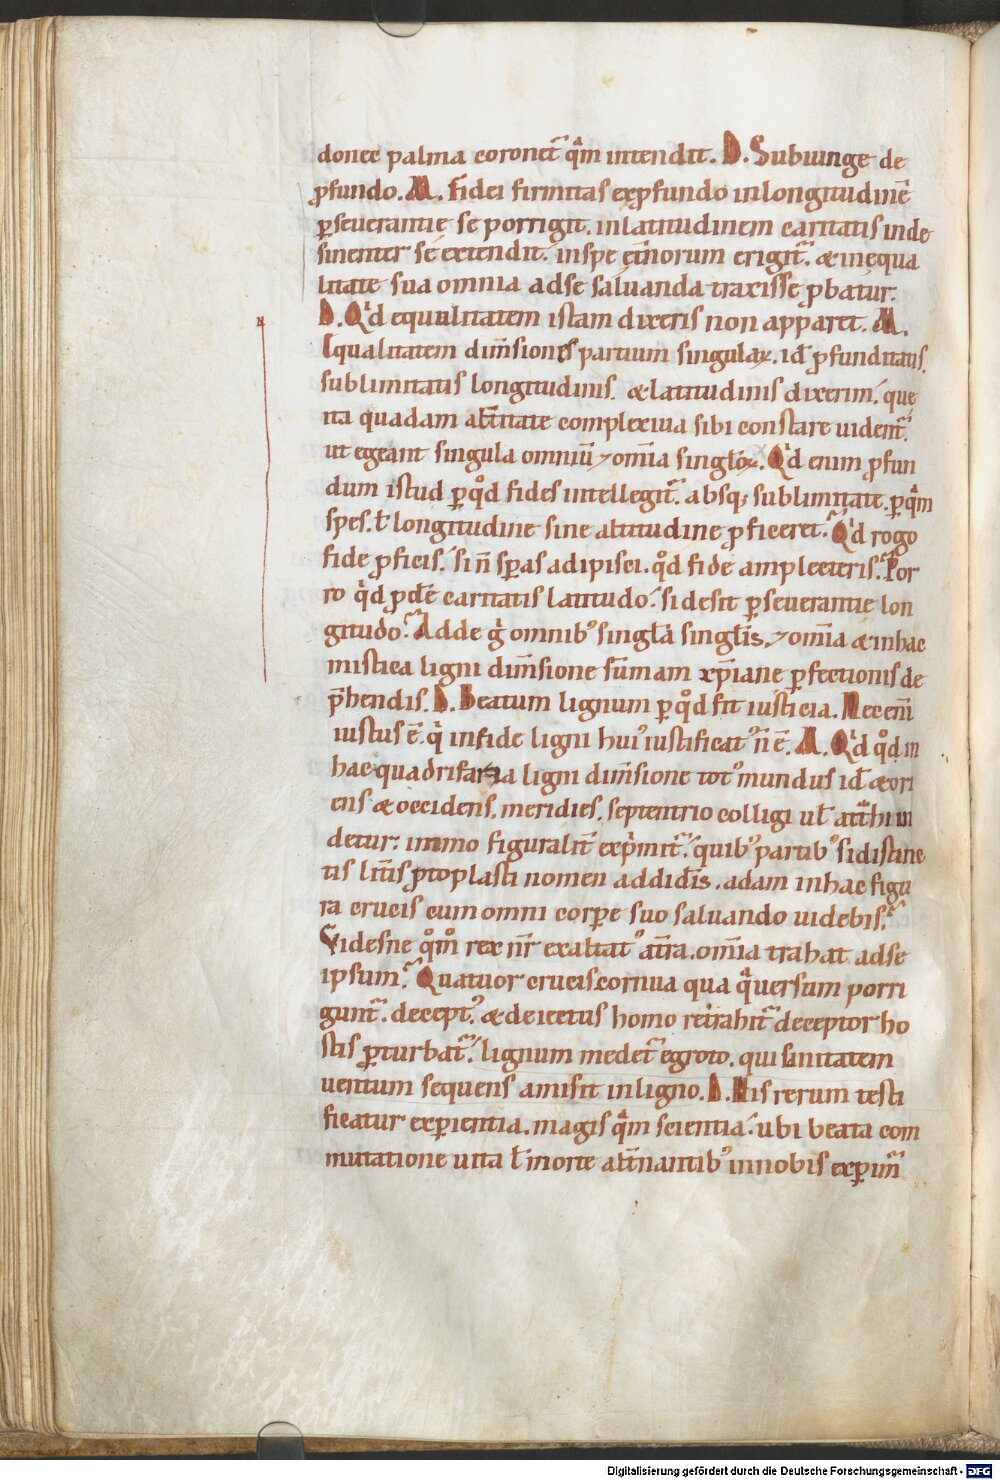 donec palma coronet᷒ qͣm intendit. D. Subiunge de
ꝓfundo. M. Fidei firmitas exꝓfundo inlongitudinē
ꝑseuerantię se porrigit. inlatitudinem caritatis inde
sinenter se extendit. inspe et̄norum erigit᷒. & inequa
litate sua omnia adse saluanda traxisse ꝓbatur.
D. Qͥd equalitatem istam dixeris non apparet. M.
Equalitatem dim̄siones partium singulaꝝ. id ꝓfunditatis.
sublimitatis longitudinis. & latitudinis dixerim. quę
ita quadam alt̄nitate complexiua sibi constare uident᷒.
ut egeant singula omniū ⁊ om̄ia singl̄oꝝ. Qͥd enim ꝓfun
dum istud ꝑ qͦd fides intellegit᷒. absqꝫ sublimitate. ꝑ qͣm
spes. ł longitudine sine altitudine ꝓficeret. Qͥd rogo
fide ꝓficis. si n̄ sꝑas adipisci. qͦd fide amplecteris. Por
ro qͥd ꝓdē caritatis latitudo. si desit ꝑseuerantię lon
gitudo. Adde g̊ omnibꝰ singl̄a singl̄is. ⁊ om̄ia & inhac
mistica ligni dim̄sione sūmam xp̄iane ꝑfectionis de
p̄hendis. D. Beatum lignum ꝑ qͦd fit iusticia. Nec em̄
iustus ē. qͥ infide ligni huiꝰ iustificatꝰ n̄ ē. M. Qͥd qͦd in
hac quadrifaria ligni dim̄sione totꝰ mundus id & ori
ens & occidens. meridies. septentrio colligi ul̄ att̃hi ui
detur. immo figuralit̄ exp̄mit᷒. quibꝰ partibꝰ si distinc
tis litt̄is ꝓtoplasti nomen addid̄is. adam inhac figu
ra crucis cum omni corꝑe suo saluando uidebis.
Videsne qͦm̊ rex nr̄ exaltatꝰ at̄ra. om̄ia trahat adse
ipsum. Quatuor crucis cornua qua qͣuersum porri
gunt᷒. deceptꝰ. & deiectus homo retrahit᷒ deceptor ho
stis ꝑturbat᷒. lignum medet᷒ egroto. qui sanitatem
uentum sequens amisit inligno. D. His rerum testi
ficatur exꝑientia. magis qͣm scientia. ubi beata com
mutatione uita ł morte alt̄nantibꝰ innobis exꝑim᷒